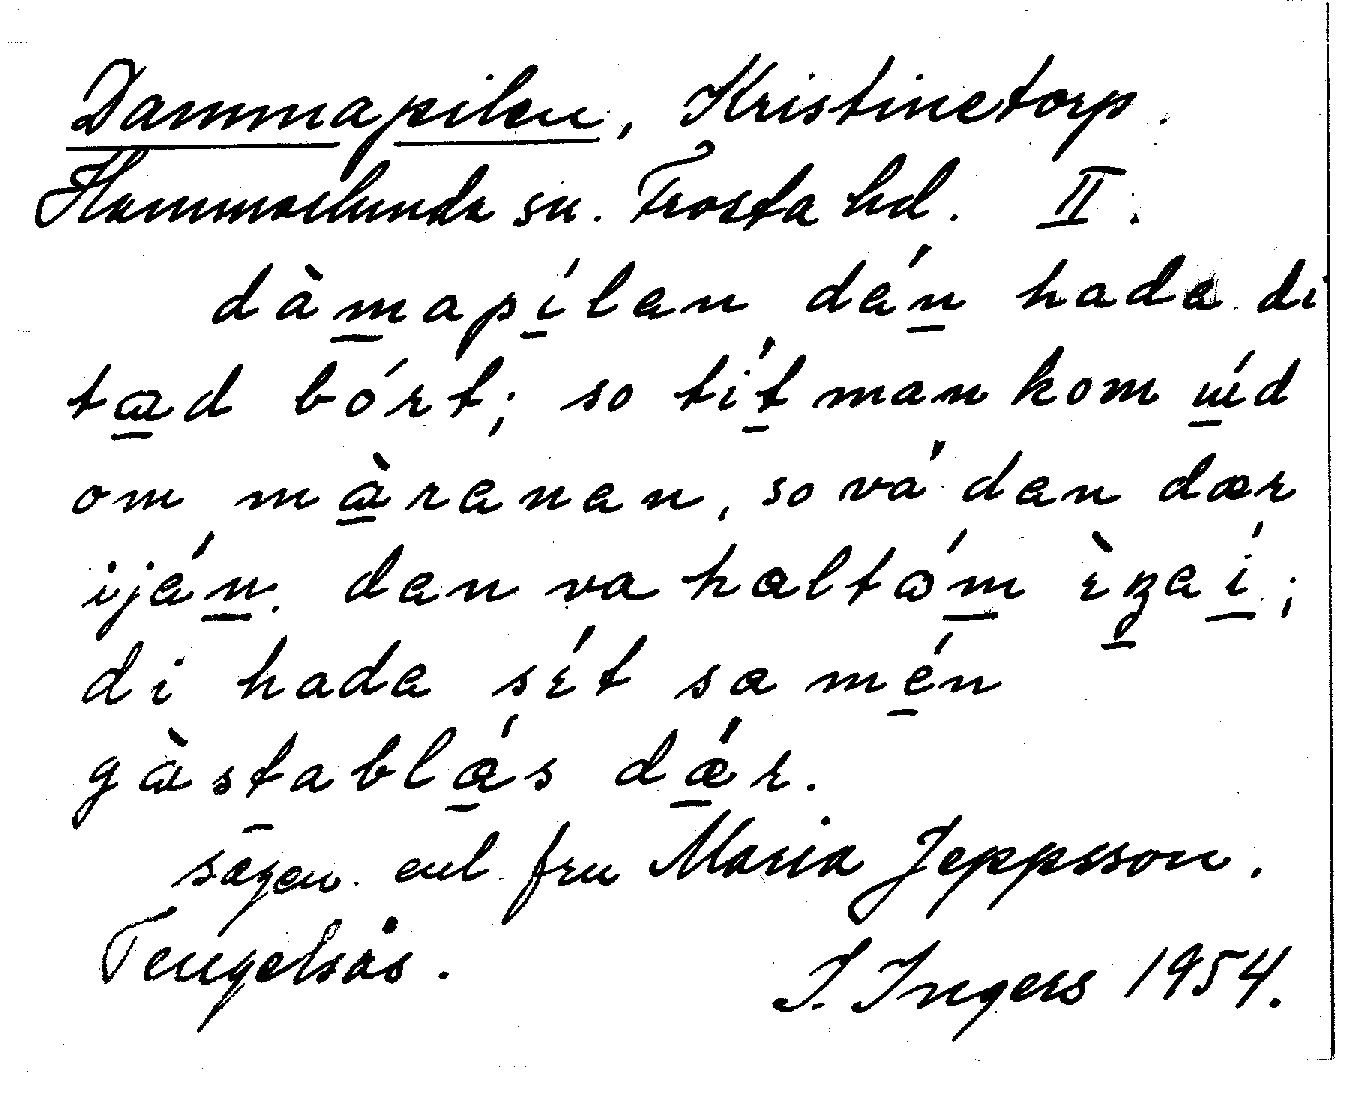 Dammapilen, Kristinetorp.
Hammarlunda sn. Frosta hd. II.
dàmapílen dén hade di
tad bórt; so tít man kom úd
om màranen, so vá den dær
ijén. den va haltóm èŋai;
di hade sét so mén
gàstablós dǽr.
sägen enl. fru Maria Jeppsson.
Tengelsås. I. Ingers 1954.